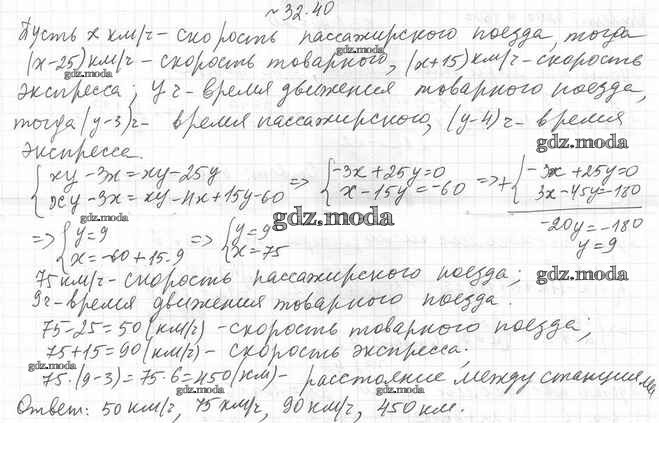 №32.40
Пусть x км/ч - скорость пассажирского поезда, тогда
(x-25) км/ч - скорость товарного, (x+15) км/ч - скорость
gdz.moda gdz.moda
экспресса; y ч - время движения товарного поезда,
тогда (y-3)ч - время пассажирского, (y-4)ч - время
gdz.moda
экспресса.
{ xy - 3x = xy - 25y => { -3x + 25y = 0 => + { -3x + 25y = 0
xy - 3x = xy - 4x + 15y - 60 x - 15y = -60 3x - 45y = -180
gdz.moda
gdz.moda
-20y = -180
=> { y = 9 => { y = 9 y = 9
x = -60 + 15·9 x = 75
75 км/ч - скорость пассажирского поезда; gdz.moda
9ч - время движения товарного поезда.
75-25=50 (км/ч) - скорость товарного поезда;
gdz.moda
75+15=90 (км/ч) - скорость экспресса;
gdz.moda
75·(9-3)=75·6=450 (км) - расстояние между станциями
gdz.moda
Ответ: 50 км/ч, 75 км/ч, 90 км/ч, 450 км.
gdz.moda gdz.moda